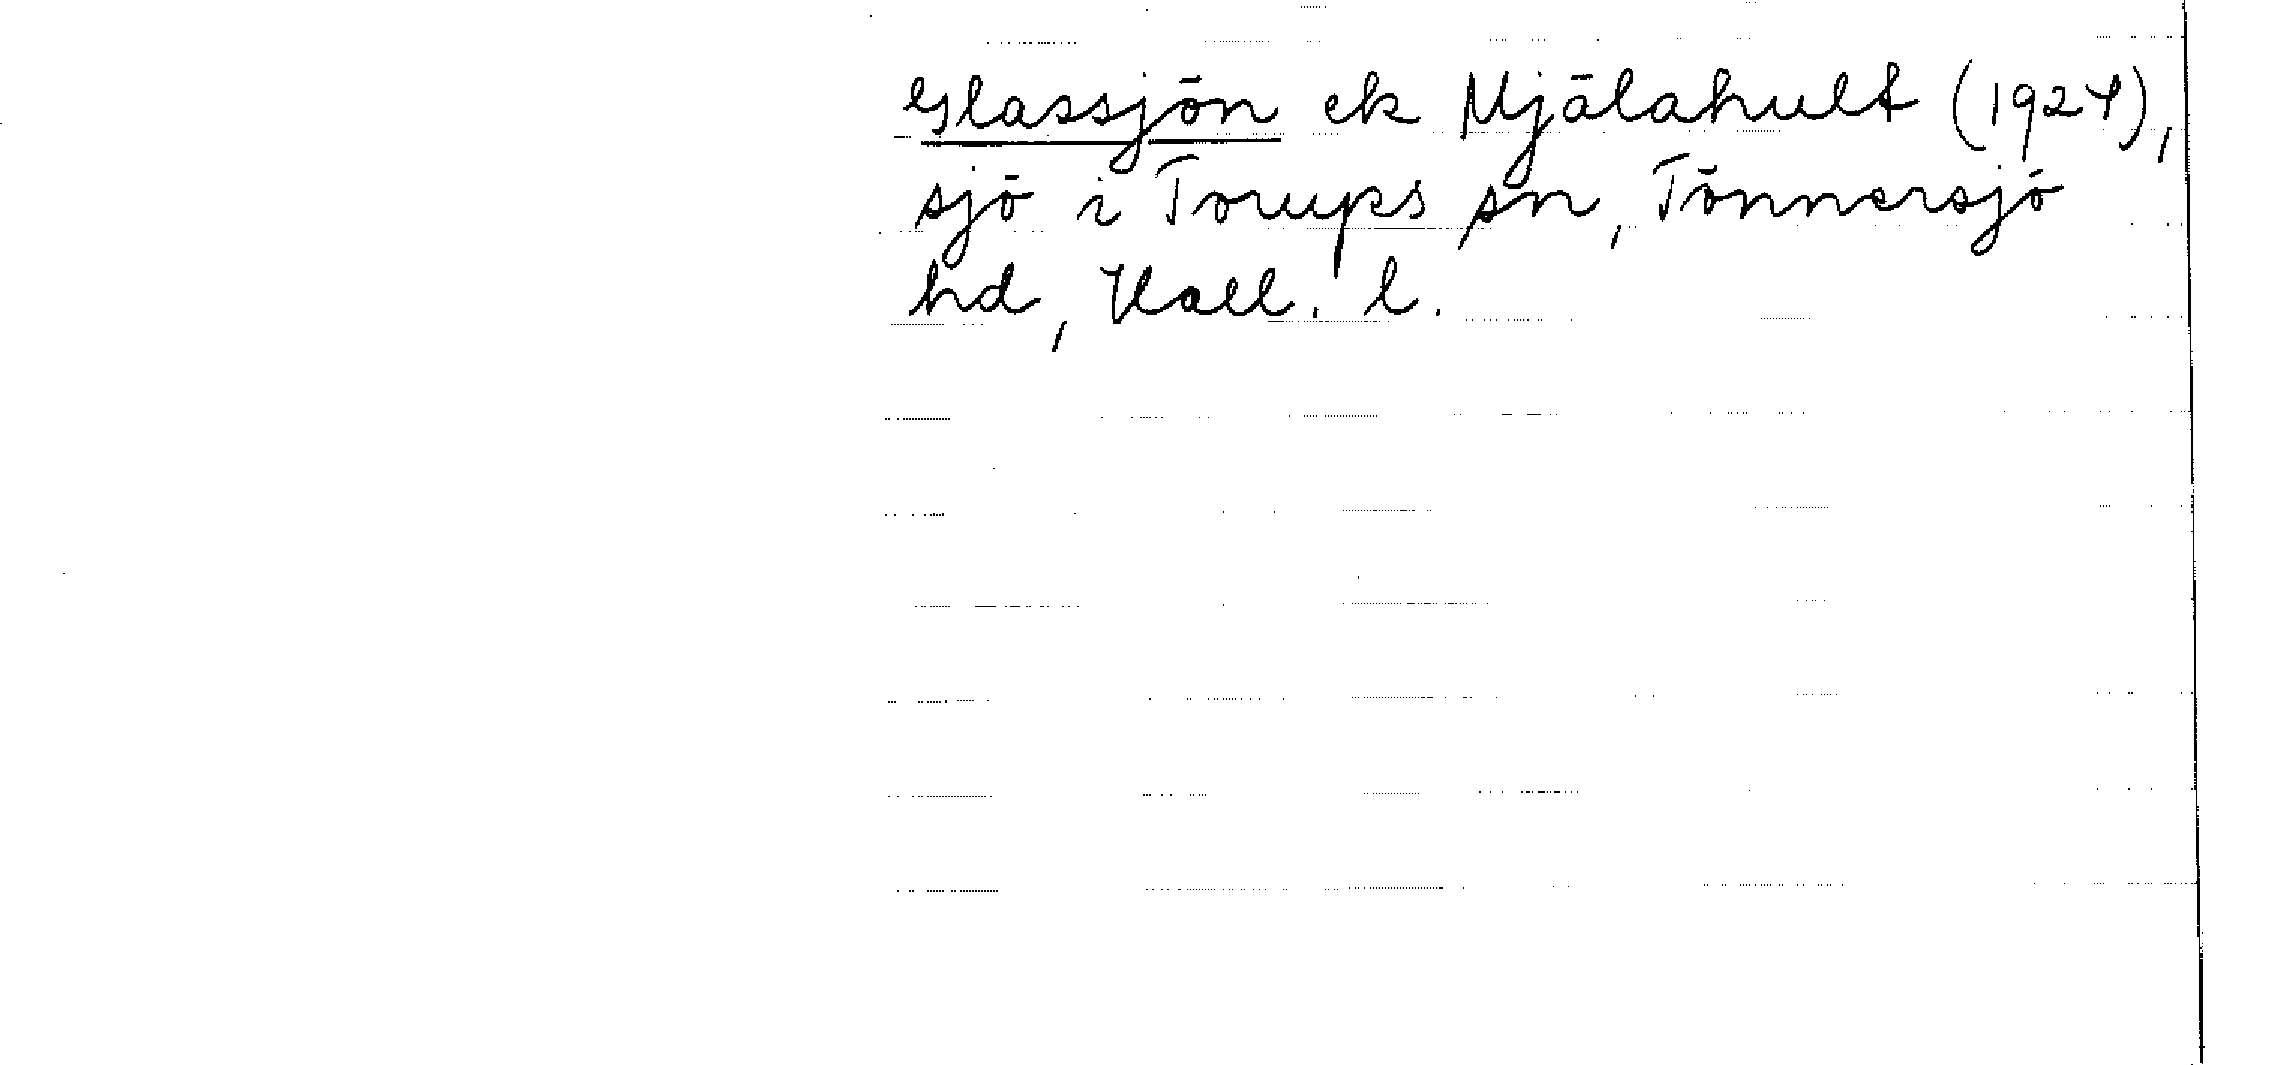 Glassjön ek Mjälahult (1924),
sjö i Torups sn, Tönnersjö
hd, Hall. l.